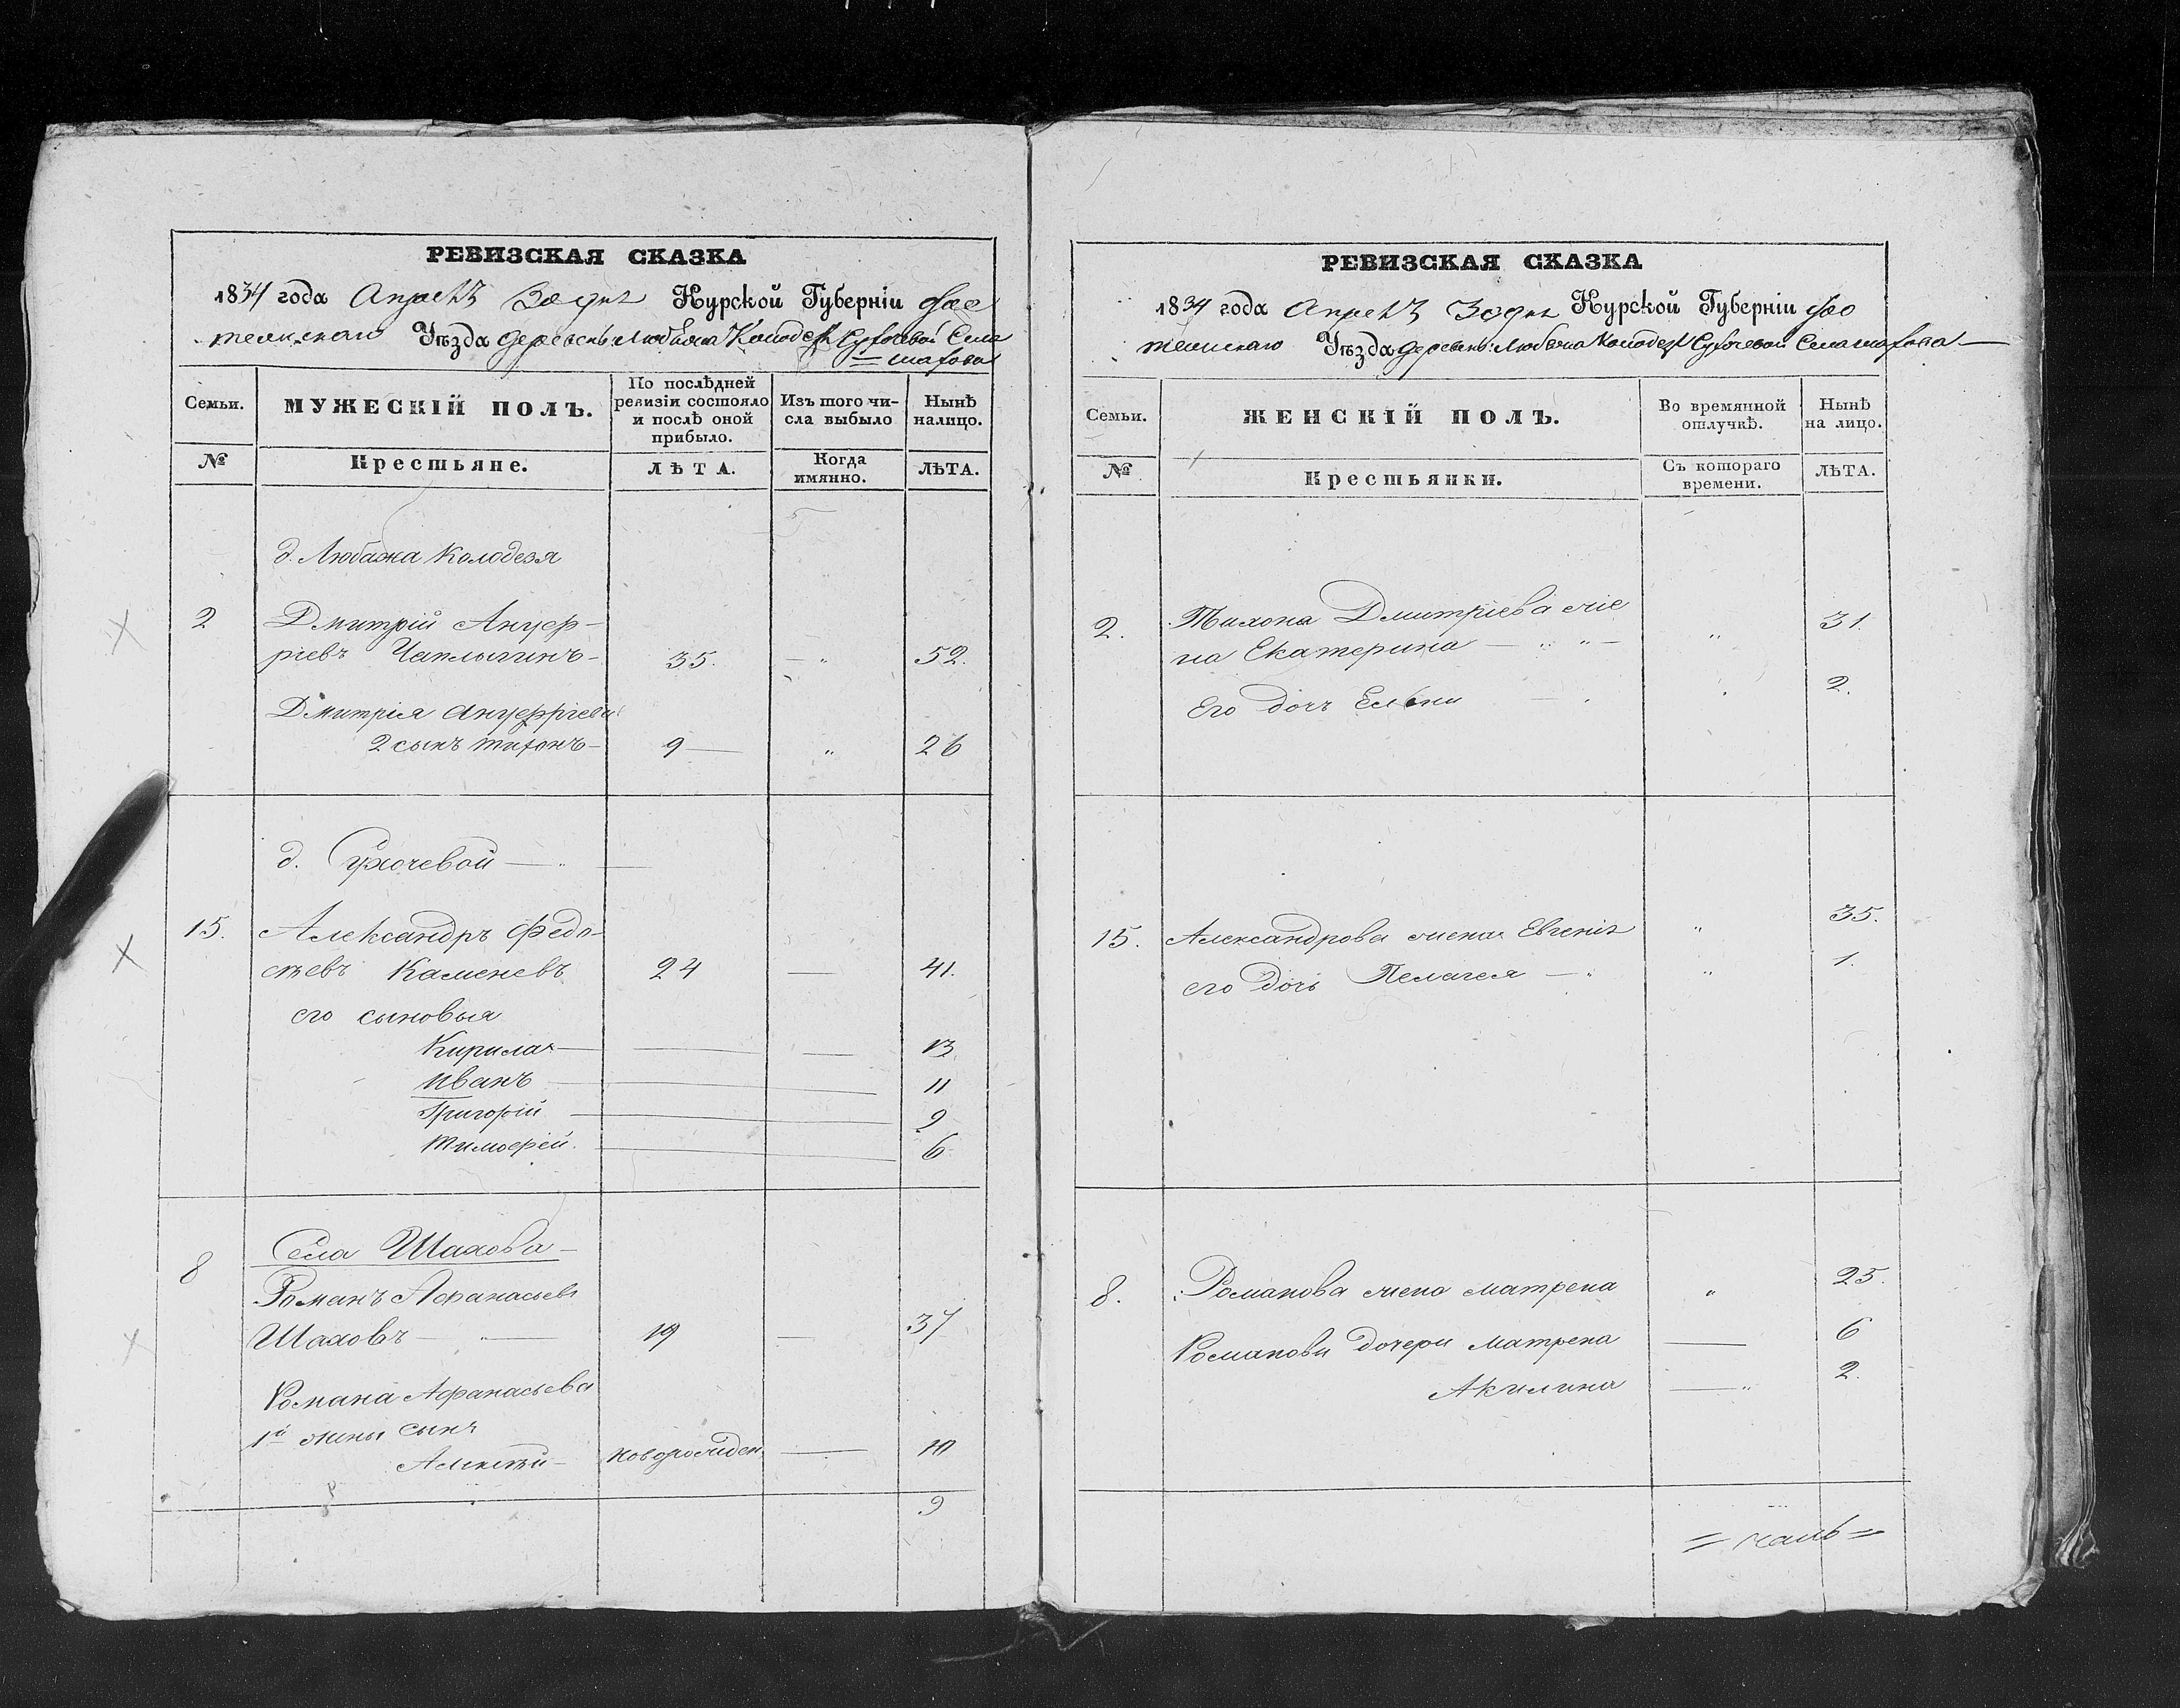 РЕВИЗСКАЯ СКАЗКА
1834 года Апреля 30 дня Курской Губерніи Фа
тежскаго Уѣзда деревень: Любажа Колодезя Сухочевой Села
Шахова
Семьи.
МУЖЕСКІЙ ПОЛЪ.
По послѣдней
ревизіи состояло
и послѣ оной
прибыло.
Изъ того чи-
сла выбыло
Нынѣ
налицо.
№
Крестьяне.
ЛѢТА.
Когда
имянно.
ЛѢТА.
д. Любажа Колодезя
2 Дмитрій
ріевъ Чаплыгинъ - 35. — „ 52.
Дмитрія
2 сынъ Тихонъ - 9 — „ 26
д. Сухочевой — „ —
15. Александръ Федо-
сѣевъ Каменевъ 24 — 41.
его сыновья
Кирила — — — 13
Иванъ — — 11
Григорій — — 9
Тимофей. — — 6
8 Села Шахова -
Романъ Афанасьевъ
Шаховъ — „ — 19 — 37
Романа Афанасьева
1й жены сынъ
Алексѣй - новорожден. — 10
9
РЕВИЗСКАЯ СКАЗКА
1834 года Апреля 30 дня Курской Губерніи Фа
тежскаго Уѣзда деревень: Любажа Колодезя Сухочевой Села Шахова —
Семьи.
ЖЕНСКІЙ ПОЛЪ.
Во времянной
отлучкѣ.
Нынѣ
на лицо.
№
Крестьянки.
Съ котораго
времени.
ЛѢТА.
2. Тихона Дмитріева же
на Екатерина — „ „ — „ 31.
Его дочь 2.
15. Александрова жена Евгенія „ 35.
его дочь Пелагея — „ „ 1.
8. Романова жена Матрена „ 25.
Романовы дочери Матрена — 6
Акилина — „ 2.